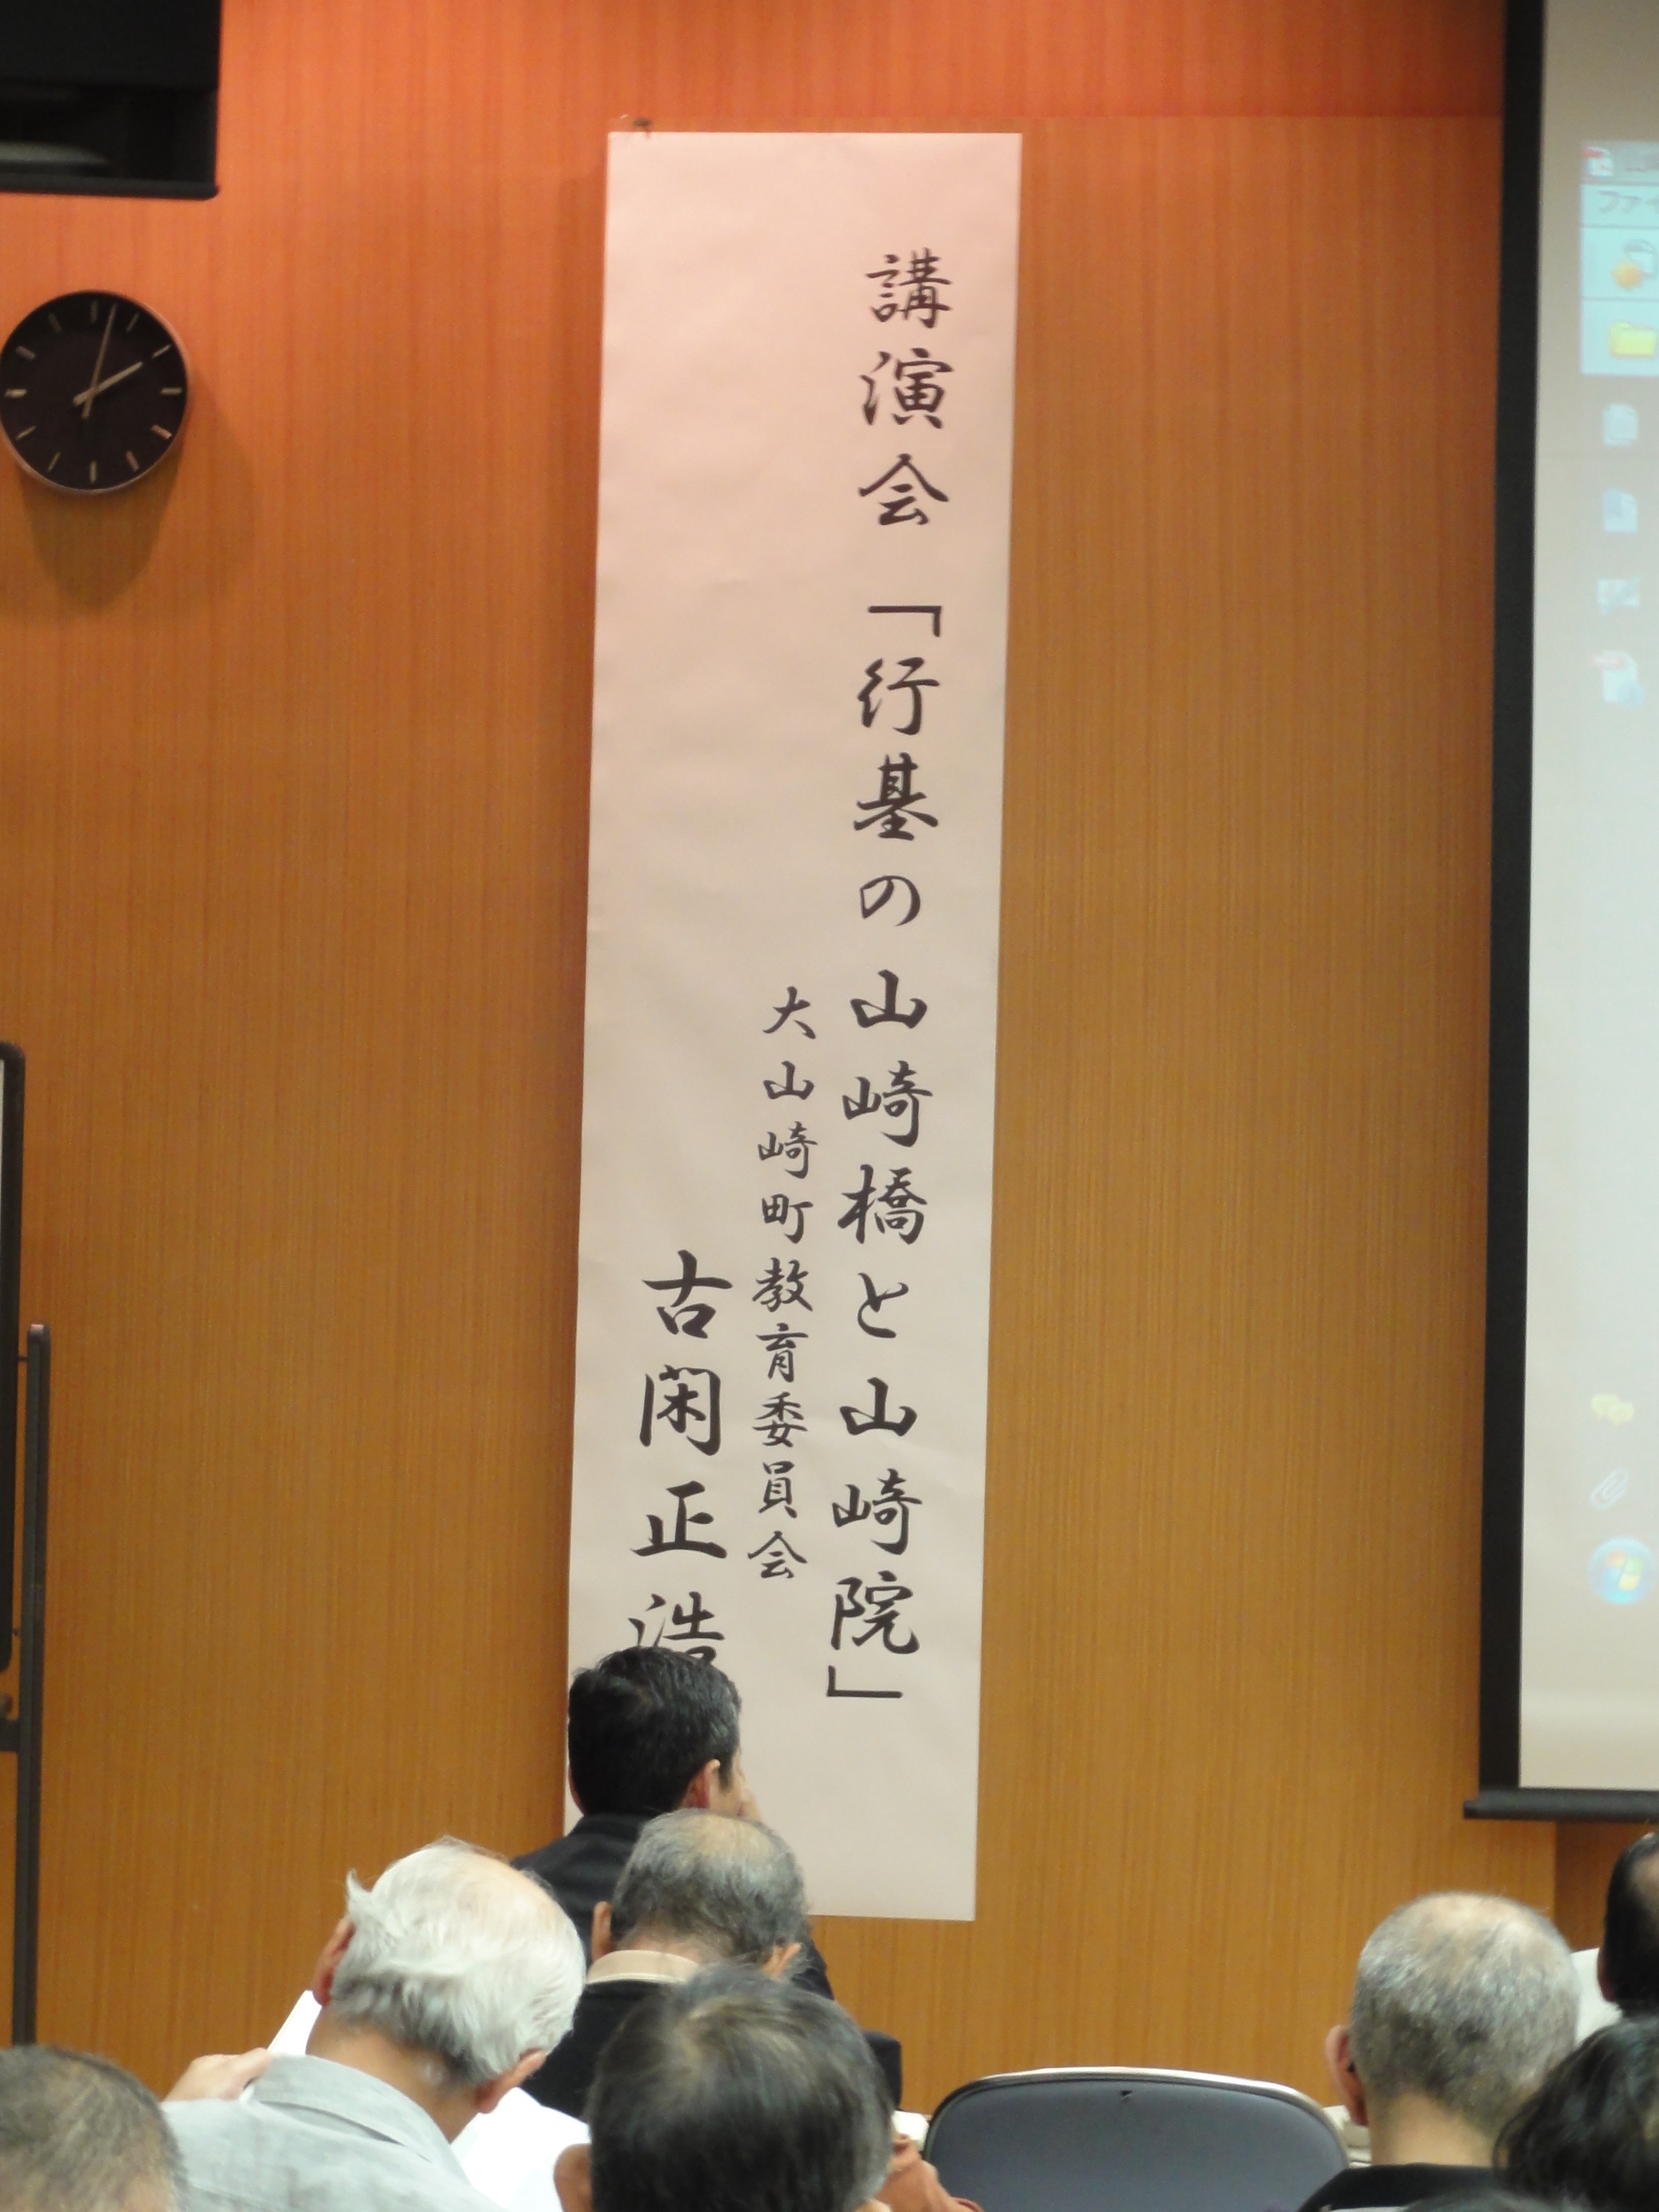 講演会「行基の山崎橋と山崎院」
大山崎町教育委員会
古閑正浩
ファイ